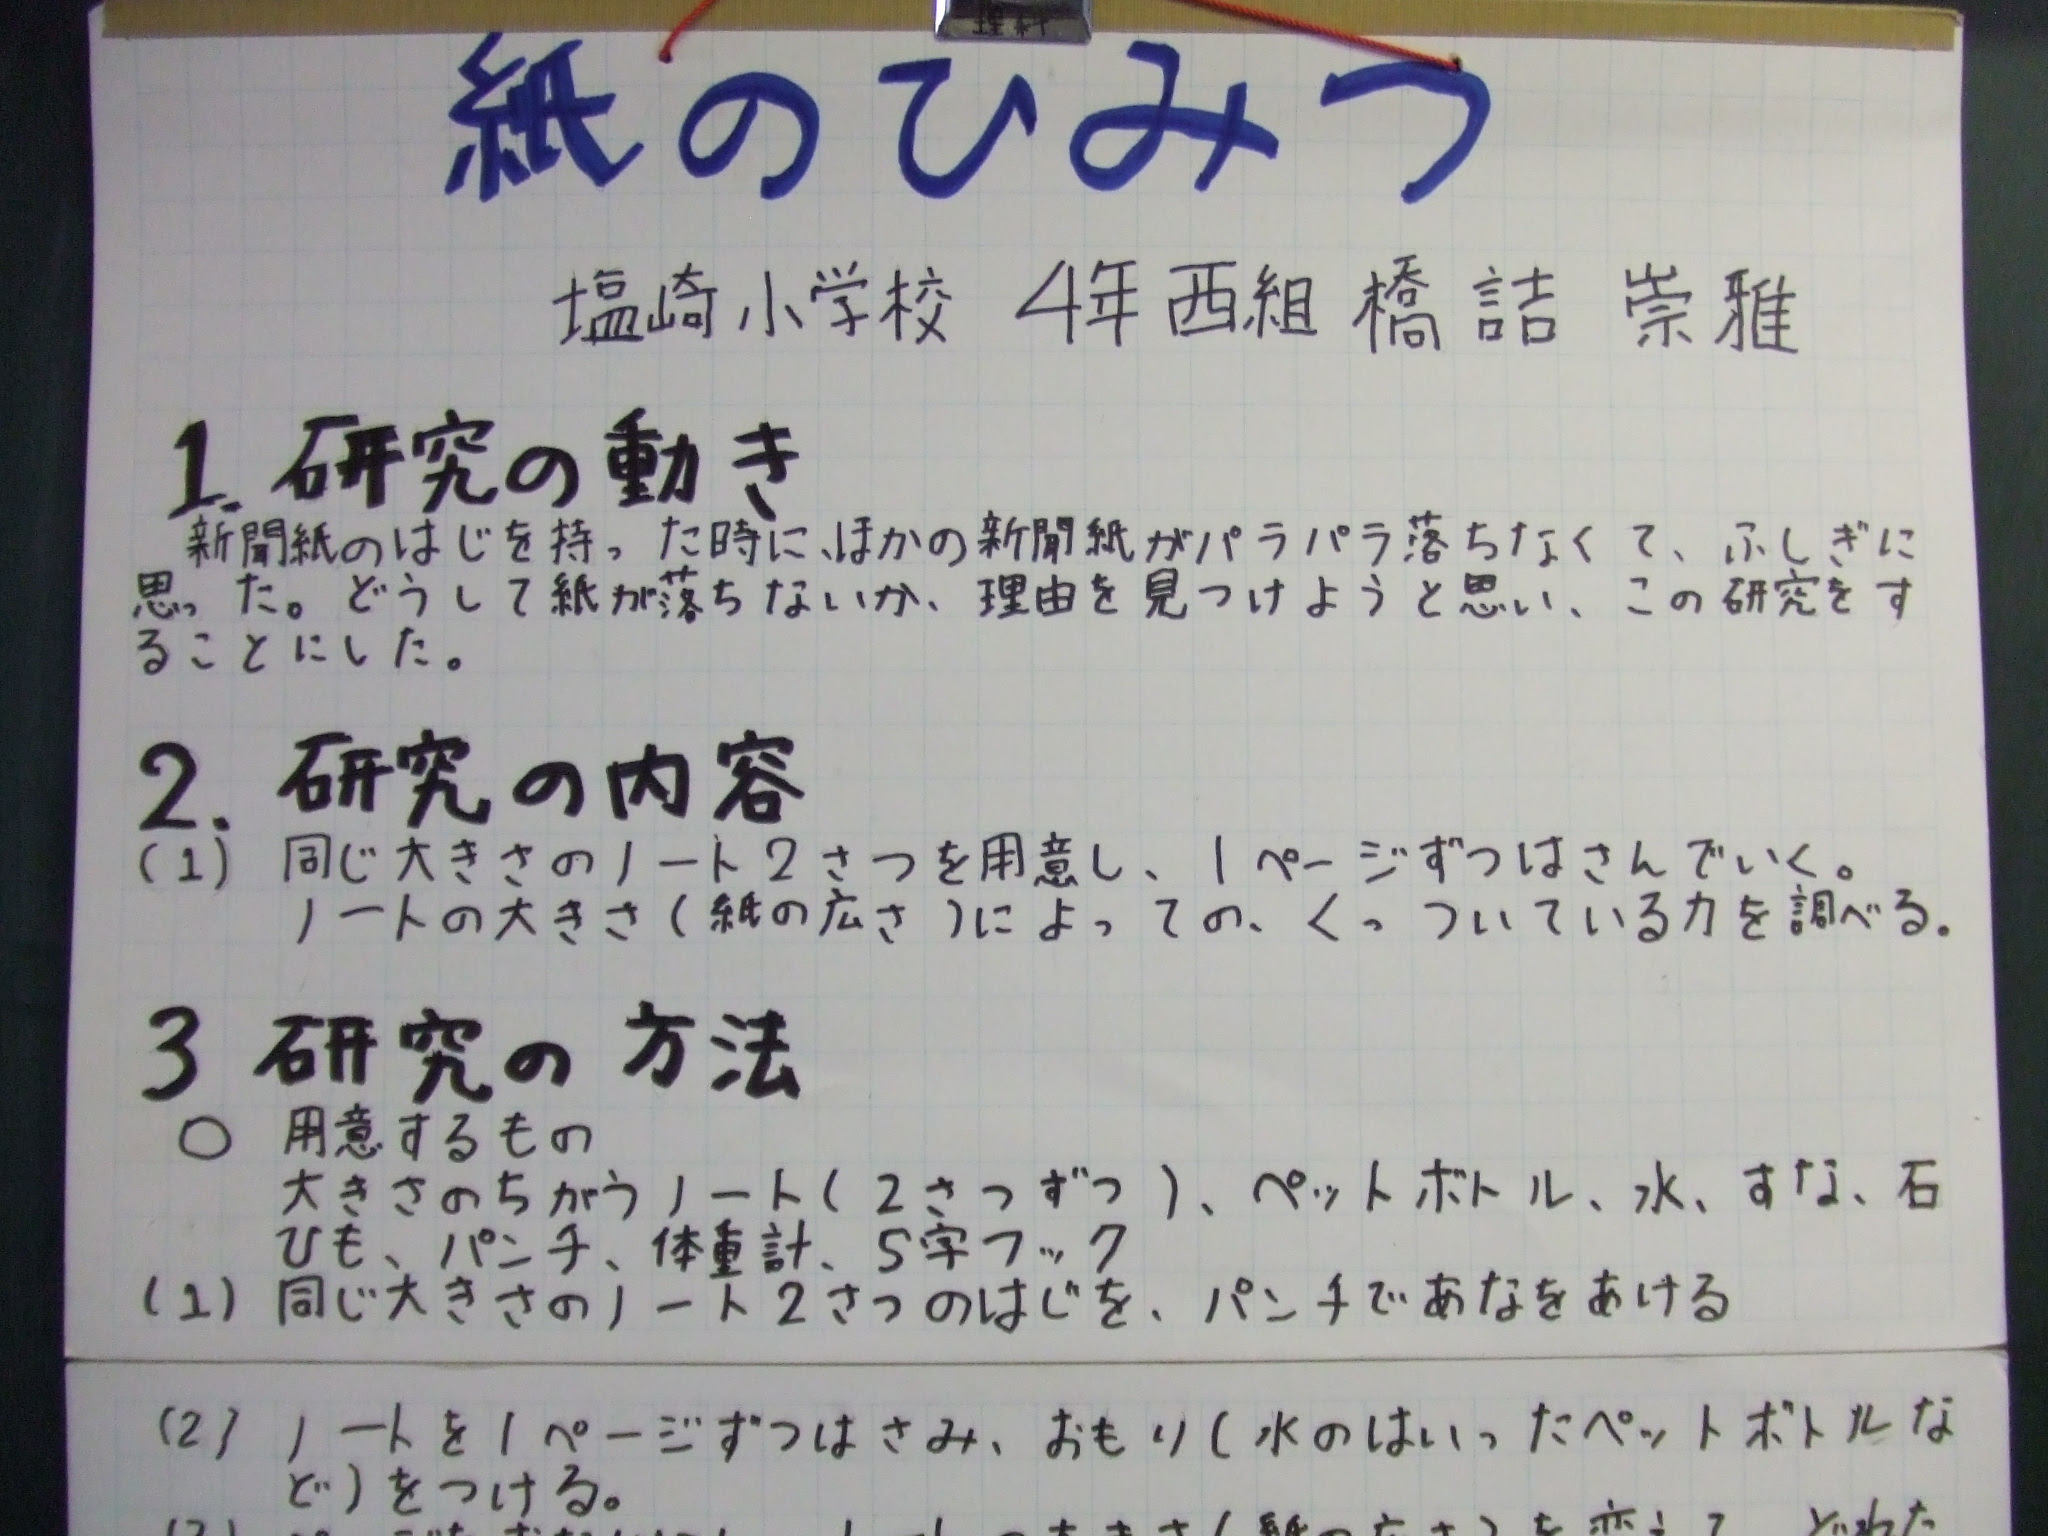 理科
紙のひみつ
塩崎小学校 4年西組 橋詰 崇雅
1. 研究の動き
新聞紙のはじを持った時に、ほかの新聞紙がパラパラ落ちなくて、ふしぎに
思った。どうして紙が落ちないか、理由を見つけようと思い、この研究をす
ることにした。
2. 研究の内容
(1) 同じ大きさのノート2さつを用意し、1ページずつはさんでいく。
ノートの大きさ(紙の広さ)によっての、くっついている力を調べる。
3 研究の方法
○ 用意するもの
大きさのちがうノート(2さつずつ)、ペットボトル、水、すな、石
ひも、パンチ、体重計、S字フック
(1) 同じ大きさのノート2さつのはじを、パンチであなをあける
(2) ノートを1ページずつはさみ、おもり(水のはいったペットボトルな
ど)をつける。